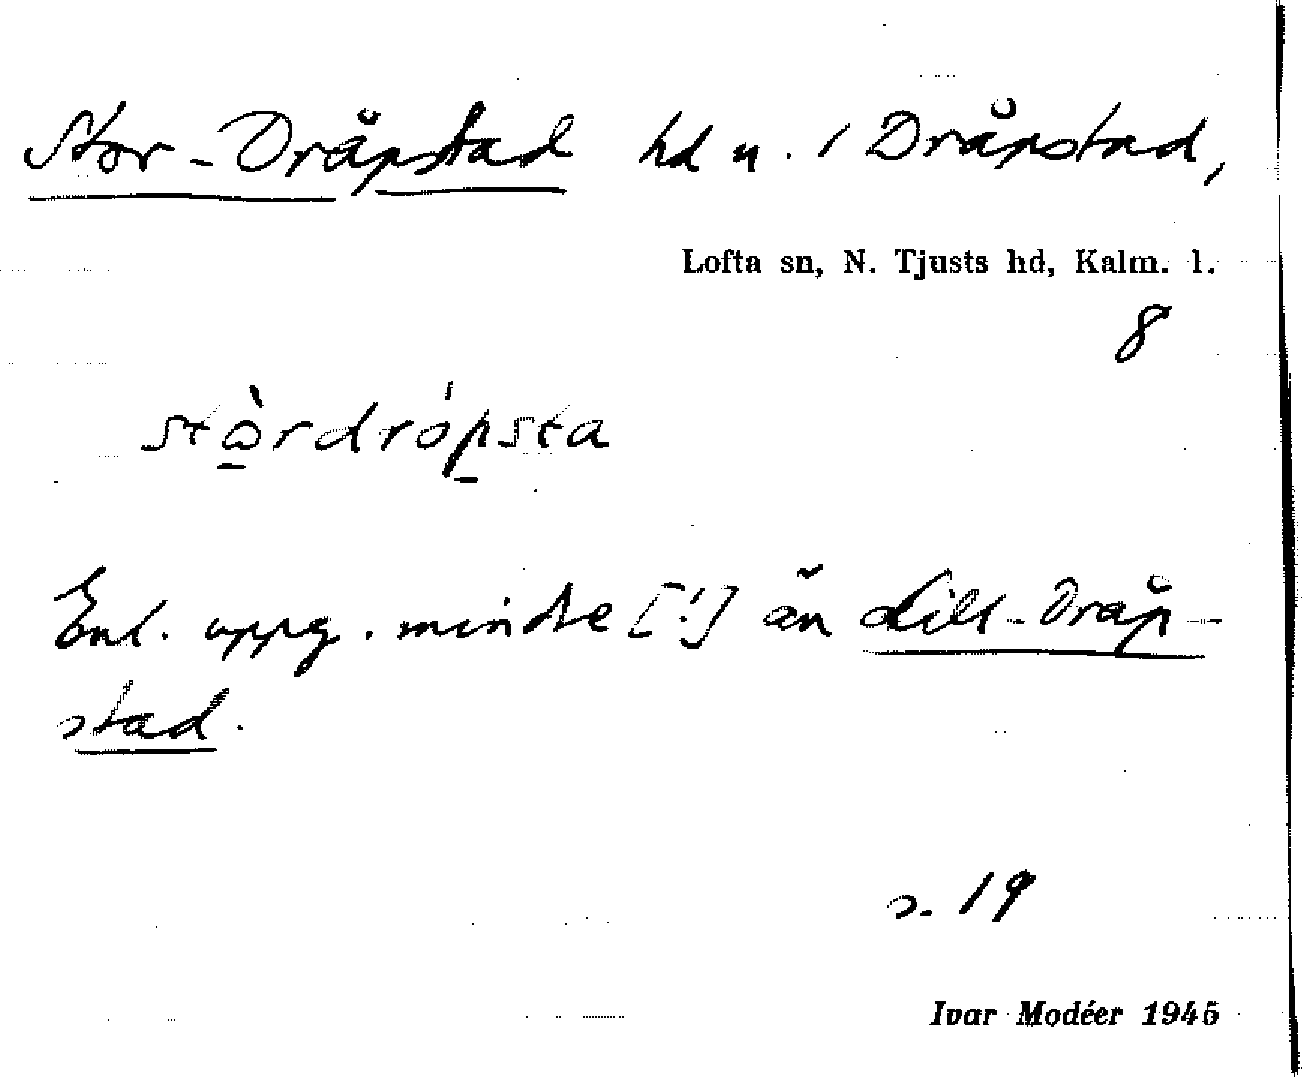 Stor-Dråpstad hd n. i Dråpstad,
Lofta sn, N. Tjusts hd, Kalm. l.
8
stòrdrópsta
Enl. uppg. mindre [!] än Lill-Dråp-
stad.
s. 19
Ivar Modéer 1945